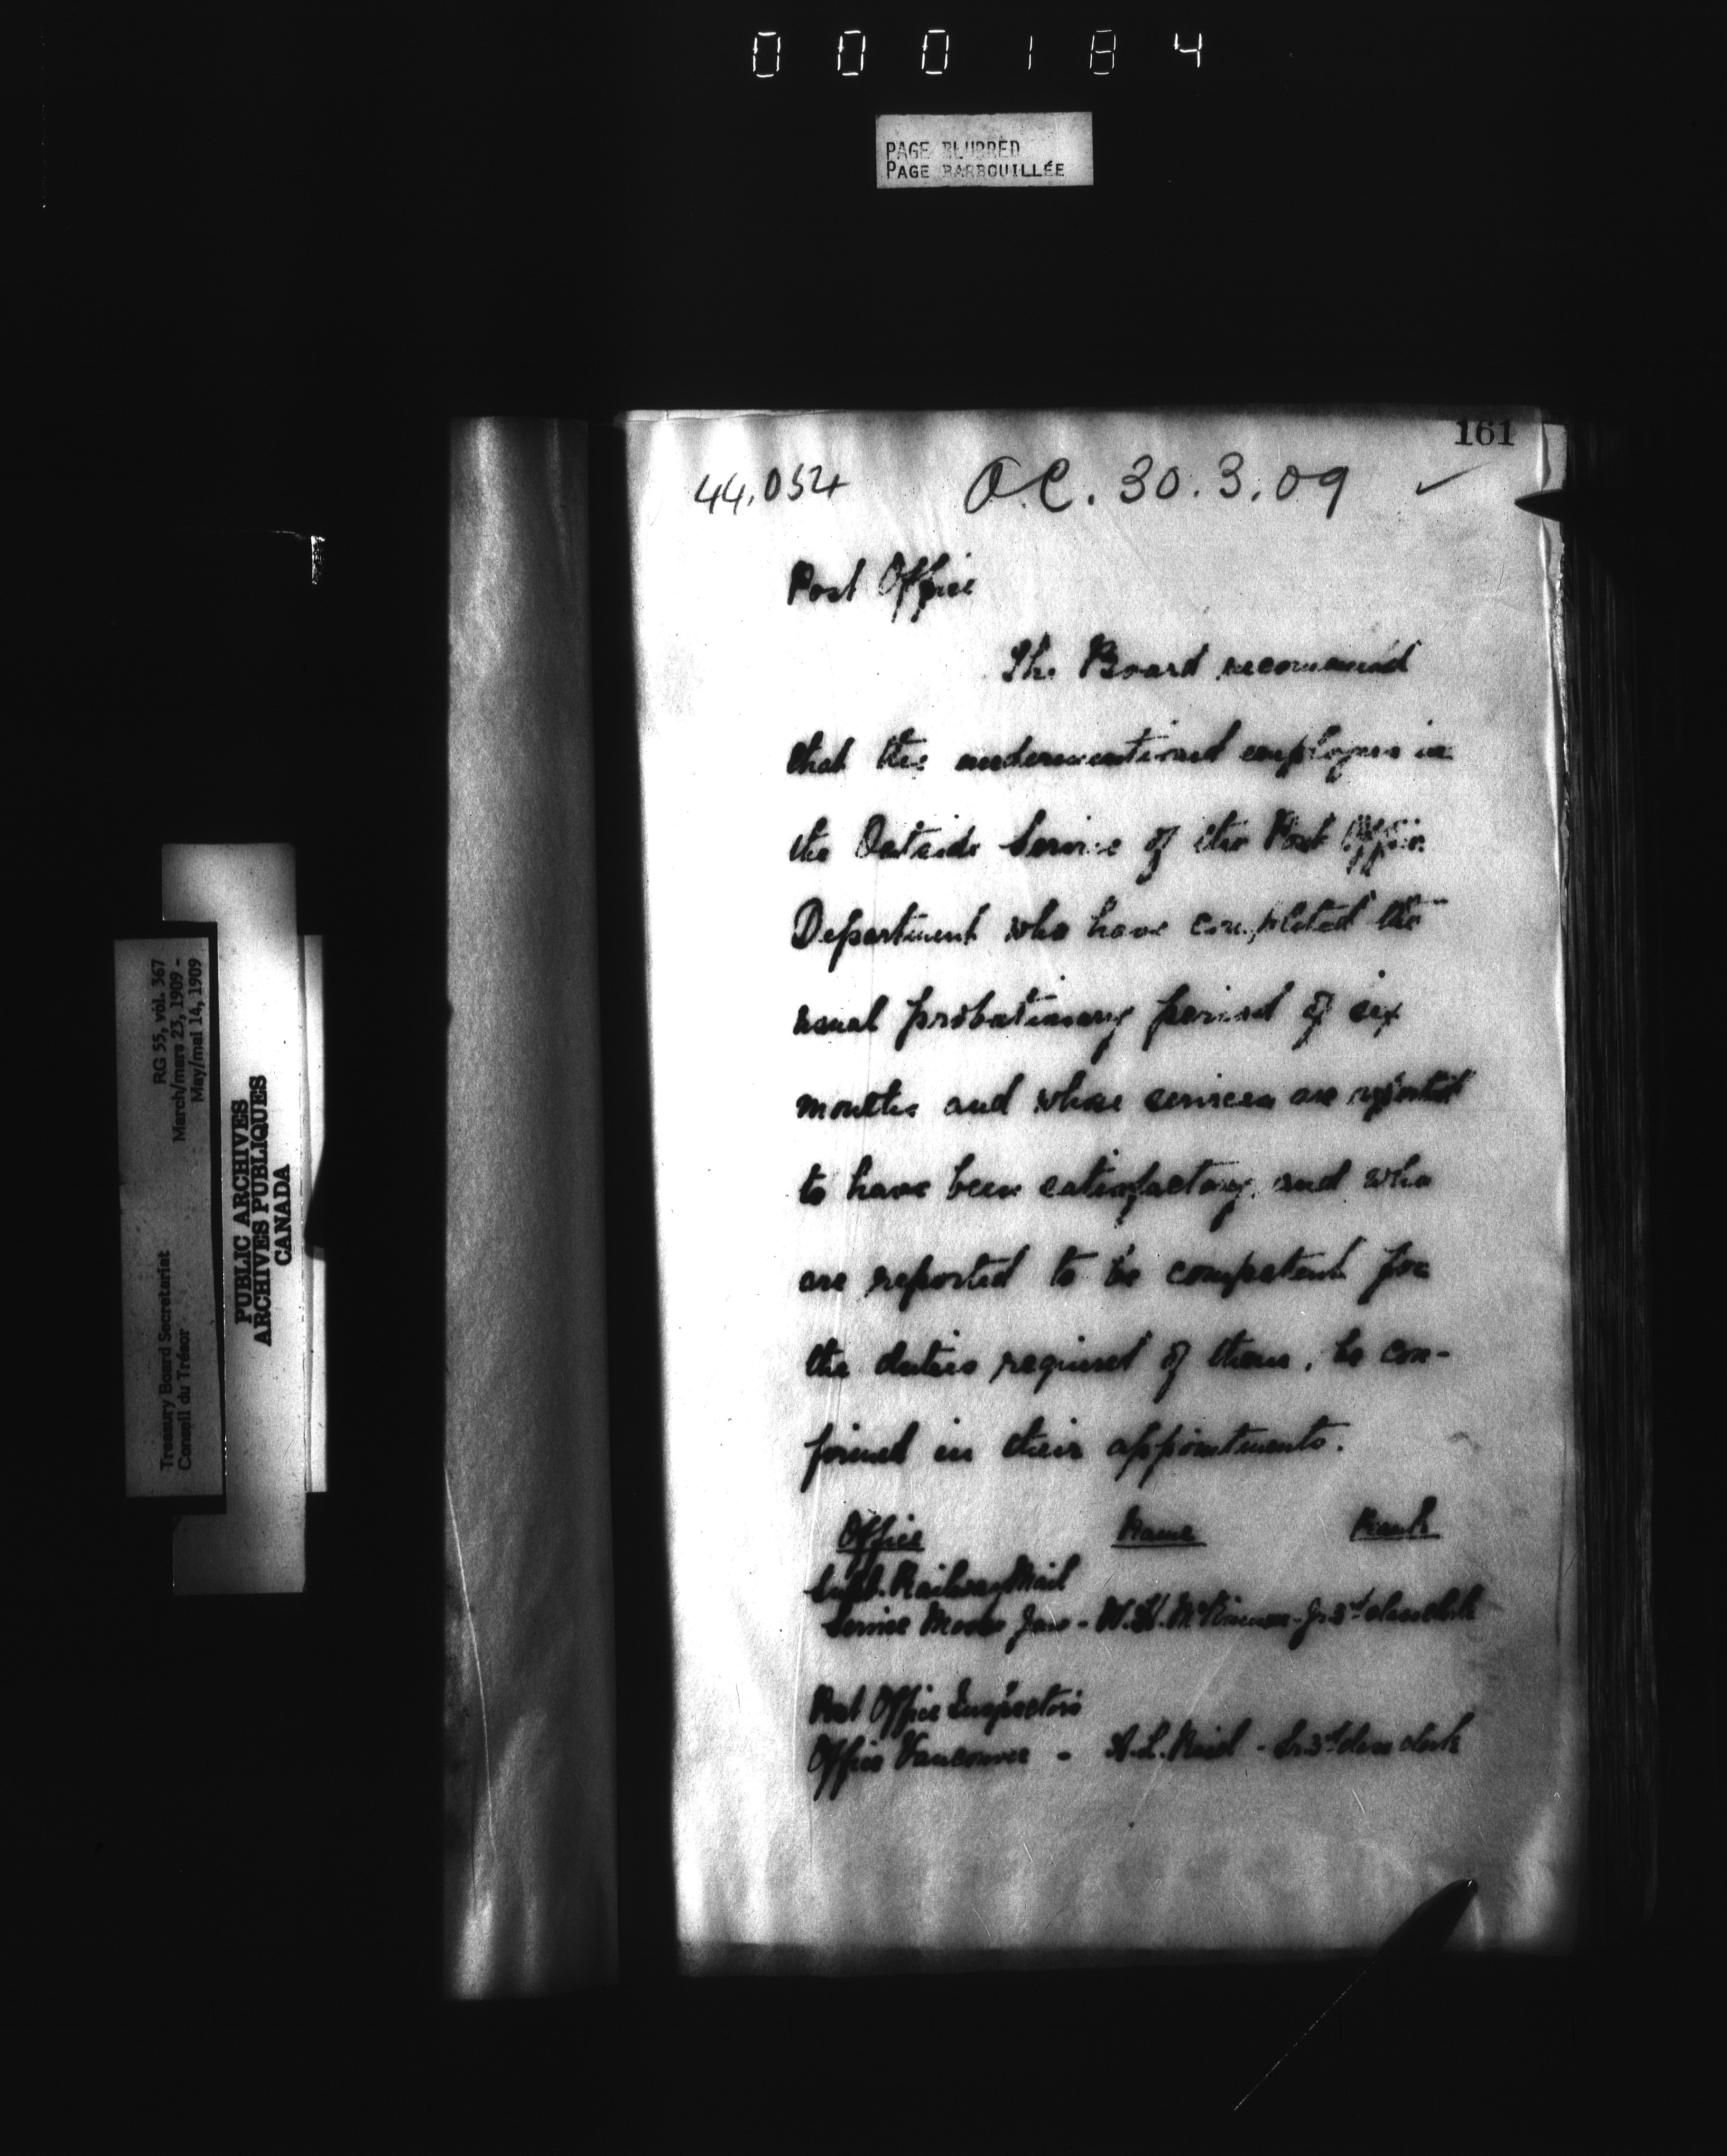 000184
PAGE BLURRED
PAGE BARBOUILLÉE
161
44,054 O.C. 30.3.09 ✓
Post Office
The Board recommend
that the undermentioned employees in
the Outside Service of the Post Office
Department who have completed the
usual probationary period of six
months and whose services are reported
to have been satisfactory, and who
are reported to be competent for
the duties required of them, be con-
firmed in their appointments.
Office Name Rank
Supt. Railway Mail
Service Moose Jaw - W.H. McKinnon - Jr 3rd class clerk
Post Office Inspector's
Office Vancouver - A.L. Reid - Jr 3rd class clerk
Treasury Board Secretariat RG 55, vol. 367
Conseil du Trésor March/mars 23, 1909 -
May/mai 14, 1909
PUBLIC ARCHIVES
ARCHIVES PUBLIQUES
CANADA